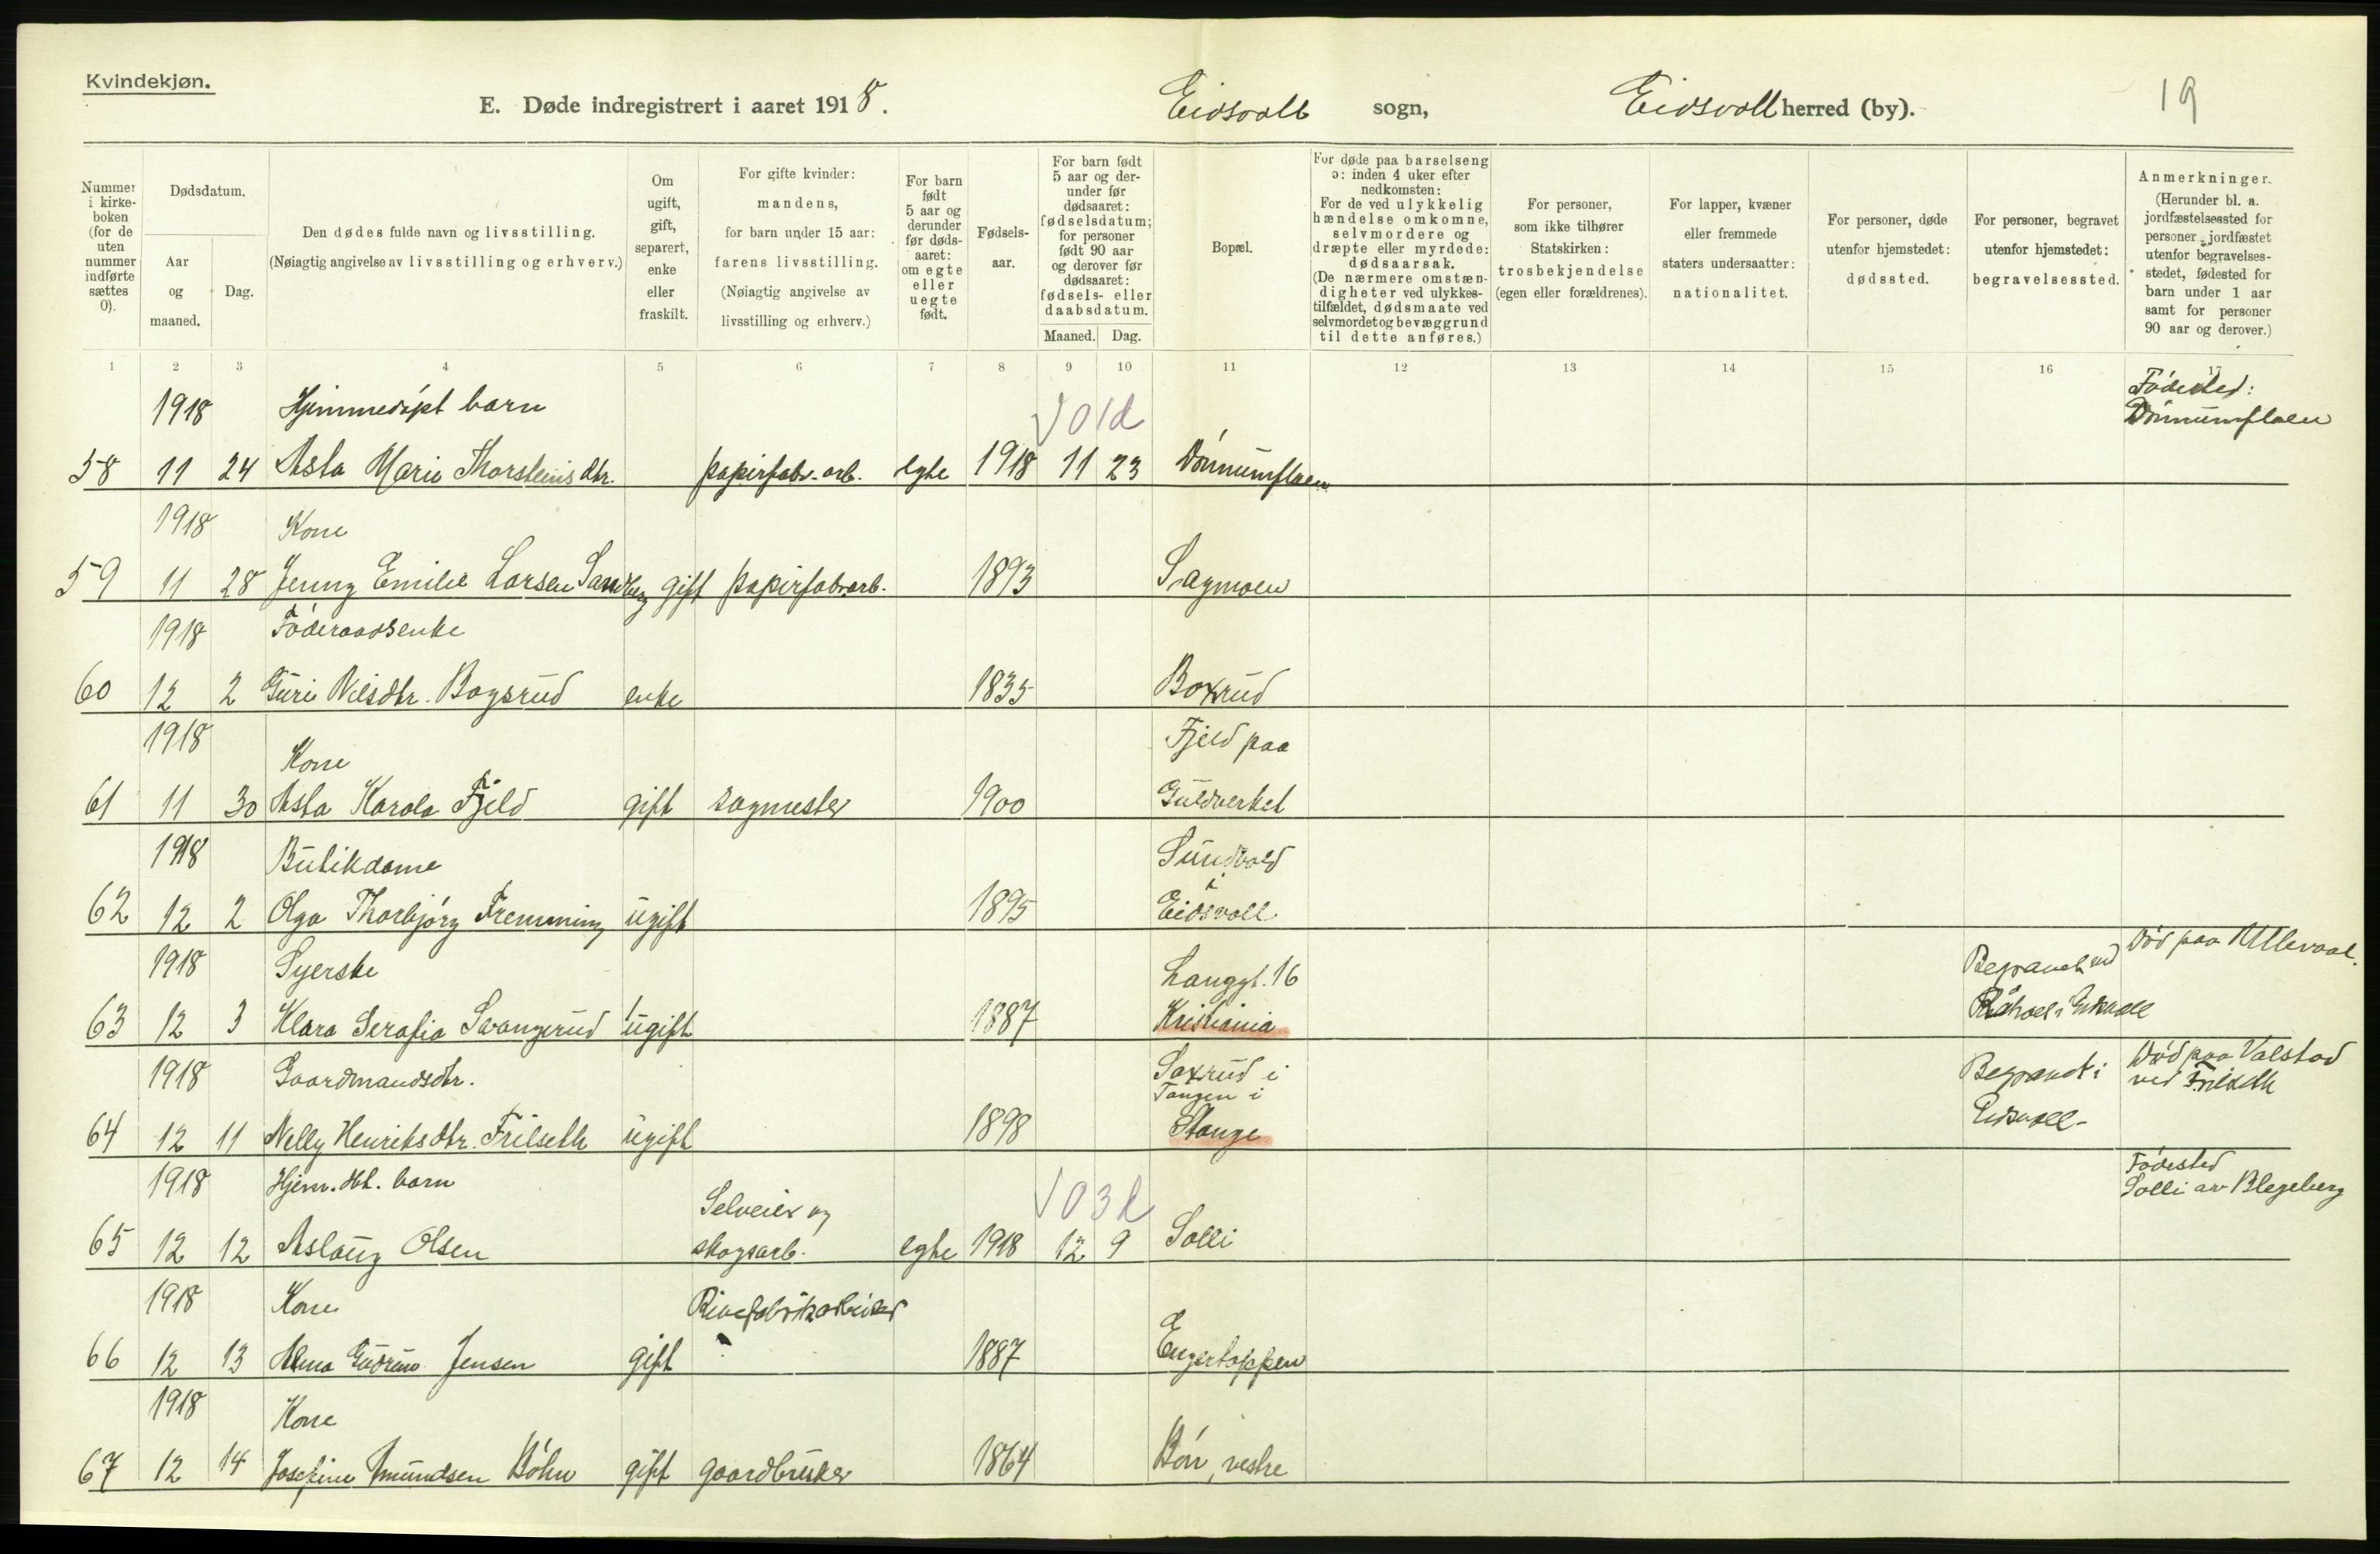 Kvindekjøn.
E. Døde indregistrert i aaret 1918.
Eidsvoll sogn,
Eidsvoll herred (by).
19
Nummer i kirkeboken (for de uten nummer indførte sættes 0).
Dødsdatum.
Aar og maaned.
Dag.
Den dødes fulde navn og livsstilling.
(Nøiagtig angivelse av livsstilling og erhverv.)
Om ugift, gift, separert, enke eller fraskilt.
For gifte kvinder: mandens, for barn under 15 aar: farens livsstilling. (Nøiagtig angivelse av livsstilling og erhverv.)
For barn født 5 aar og derunder før dødsaaret: om egte eller uegte født.
Fødselsaar.
For barn født 5 aar og derunder før dødsaaret: fødselsdatum; for personer født 90 aar og derover før dødsaaret: fødsels- eller daabsdatum.
Maaned. Dag.
Bopæl.
For døde paa barselseng ɔ: inden 4 uker efter nedkomsten: For de ved ulykkelig hændelse omkomne, selvmordere og dræpte eller myrdede: dødsaarsak. (De nærmere omstændigheter ved ulykkestilfældet, dødsmaate ved selvmordet og bevæggrund til dette anføres.)
For personer, som ikke tilhører Statskirken: trosbekjendelse (egen eller forældrenes).
For lapper, kvæner eller fremmede staters undersaatter: nationalitet.
For personer, døde utenfor hjemstedet: dødssted.
For personer, begravet utenfor hjemstedet: begravelsessted.
Anmerkninger. (Herunder bl. a. jordfæstelsessted for personer jordfæstet utenfor begravelsesstedet, fødested for barn under 1 aar samt for personer 90 aar og derover.)
1 2 3 4 5 6 7 8 9 10 11 12 13 14 15 16 17
1918 Hjemmedøpt barn V 01d Fødested: Dønnumflaen
58 11 24 Asta Marie Thorsteinsdtr. papirfabr.arb. egte 1918 11 23 Dønnumflaen
1918 Kone
59 11 28 Jenny Emilie Larsen Sandberg gift papirfabr.arb. 1893 Sagmoen
1918 Føderaadsenke
60 12 2 Guri Nilsdtr. Bogsrud enke 1835 Boxrud
1918 Kone Fjeld paa
61 11 30 Asta Karola Fjeld gift sagmester 1900 Guldverket
1918 Butikdame Sundvold i
62 12 2 Olga Thorbjørg Fremming ugift 1895 Eidsvoll
1918 Syerske Langgt. 16 Begravet ved Død paa Ullevaal.
63 12 3 Klara Serafia Svangerud ugift 1887 Kristiania Råholt i Eidsvoll
1918 Gaardmandsdtr. Saxrud i Tangen i Begravet i Død paa Valstad ved Frilseth
64 12 11 Nelly Henriksdtr. Frilseth ugift 1898 Stange Eidsvoll
1918 Hjem.dbt. barn Selveier og V 03d Fødested Solli av Blegeberg
65 12 12 Aslaug Olsen skogsarb. egte 1918 12 9 Solli
1918 Kone
66 12 13 Alma Gudrun Jensen gift 1887 Engertoppen
1918 Kone
67 12 14 Josefine Amundsen Bøhn gift gaardbruker 1864 Bøn, vestre